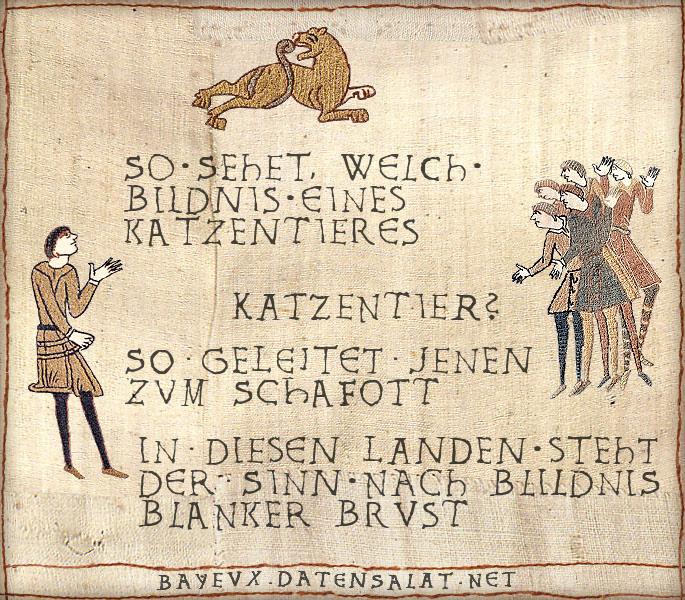 SO·SEhET, WELCh·
BILDNIS·EINES
KATZENTIERES
KATZENTIER?
SO·GELEITET·JENEN
ZVM SChAFOTT
IN·DIESEN LANDEN·STEhT
DER·SINN·NACh BLILDNIS
BLANKER BRVST
BAYEVX.DATENSALAT.NET